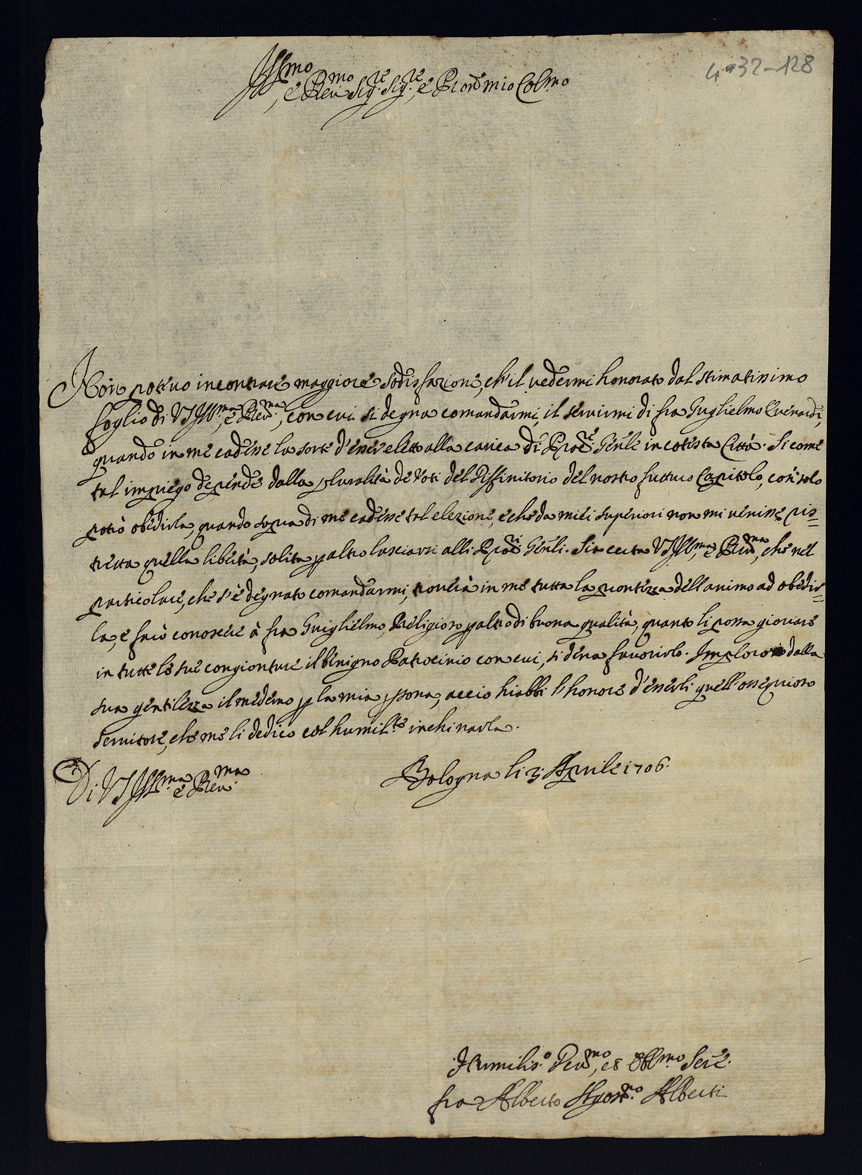 4-32-128
Ill.mo
e Rev.mo Sig.re Sig.re e Pron mio Col.mo
Non potevo incontrare maggiore sodisfazione, ch'il vedermi honorato dal stimatissimo
foglio di V.S. Ill.ma e Rev.ma, con cui si degna comandarmi, il servirmi di fra Guglielmo
quando in me cadesse la sorte d'esser eletto alla carica di Gen.le in cotesta Città. Si come
tal impiego depende dalla pluralità de Voti del Diffinitorio del nostro futturo Capitolo, così solo
potrò obedirla, quando sopra di me cadesse tal elezione, e che da miei superiori non mi venisse ris=
tretta quella libertà solita p altro lasciarsi alli Gen.li. Sia certa V.S. Ill.ma e Rev.ma, che nel
particolare, che s'è degnato comandarmi, troverà in me tutta la prontezza dell'animo ad obedir=
la, e farò conoscere à fra Guiglielmo, Religioso p altro di buona qualità, quanto li possa giovare
in tutte le sue congionture il benigno Patrocinio con cui, si degna favorirlo. Imploro dalla
sua gentilezza il medemo p la mia psona, acciò hiabbi l'honore d'esserli quell'ossequioso
servitore, che me li dedico col humil.te inchinarla.
Di V.S. Ill.ma e Rev.ma
Bologna li 3 Aprile 1706.
Humilis.o Dev.mo, et Obl.mo Ser.e
fra Alberto Agost.no Alberti